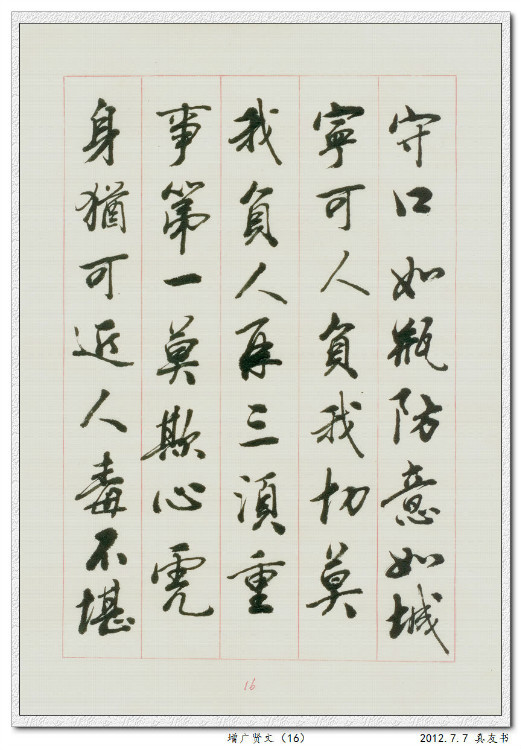 守口如瓶防意如城
寧可人負我切莫
我負人再三須重
事第一莫欺心虎
身猶可近人毒不堪
16
增广贤文（16）
2012.7.7 真友书